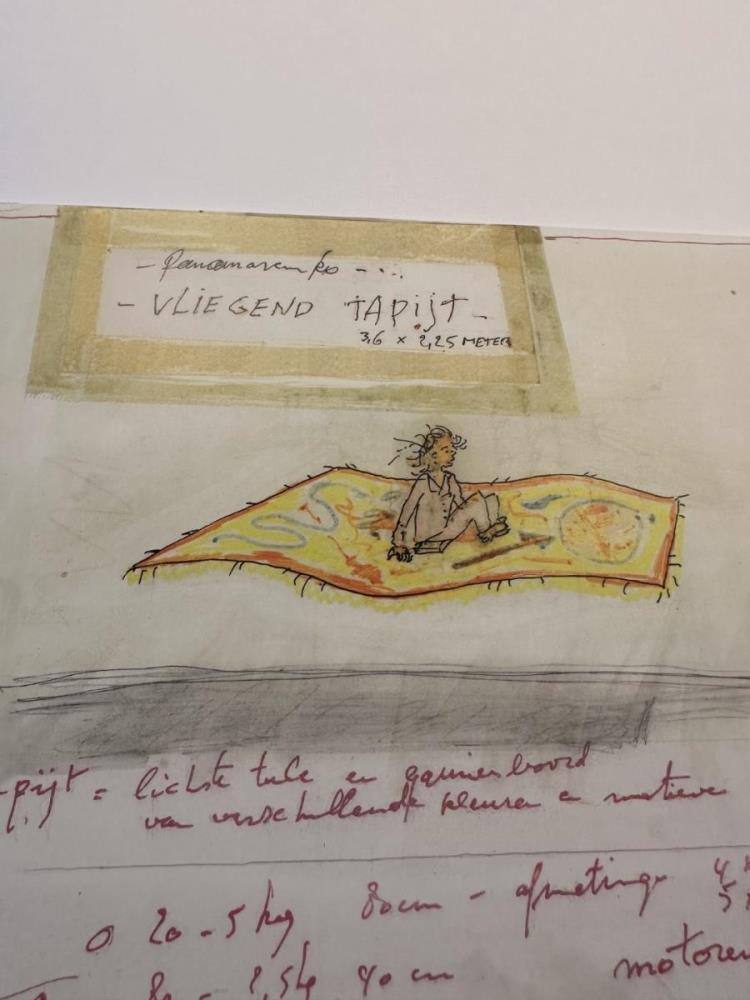 - Panamarenko - ...
- VLIEGEND TAPIJT -
3,6 x 2,25 METER
-pijt = lichte tule en
van verschillende kleuren
0 20 - 5 kg 80cm - afmetinge 4
5
80 - 40 cm motoren